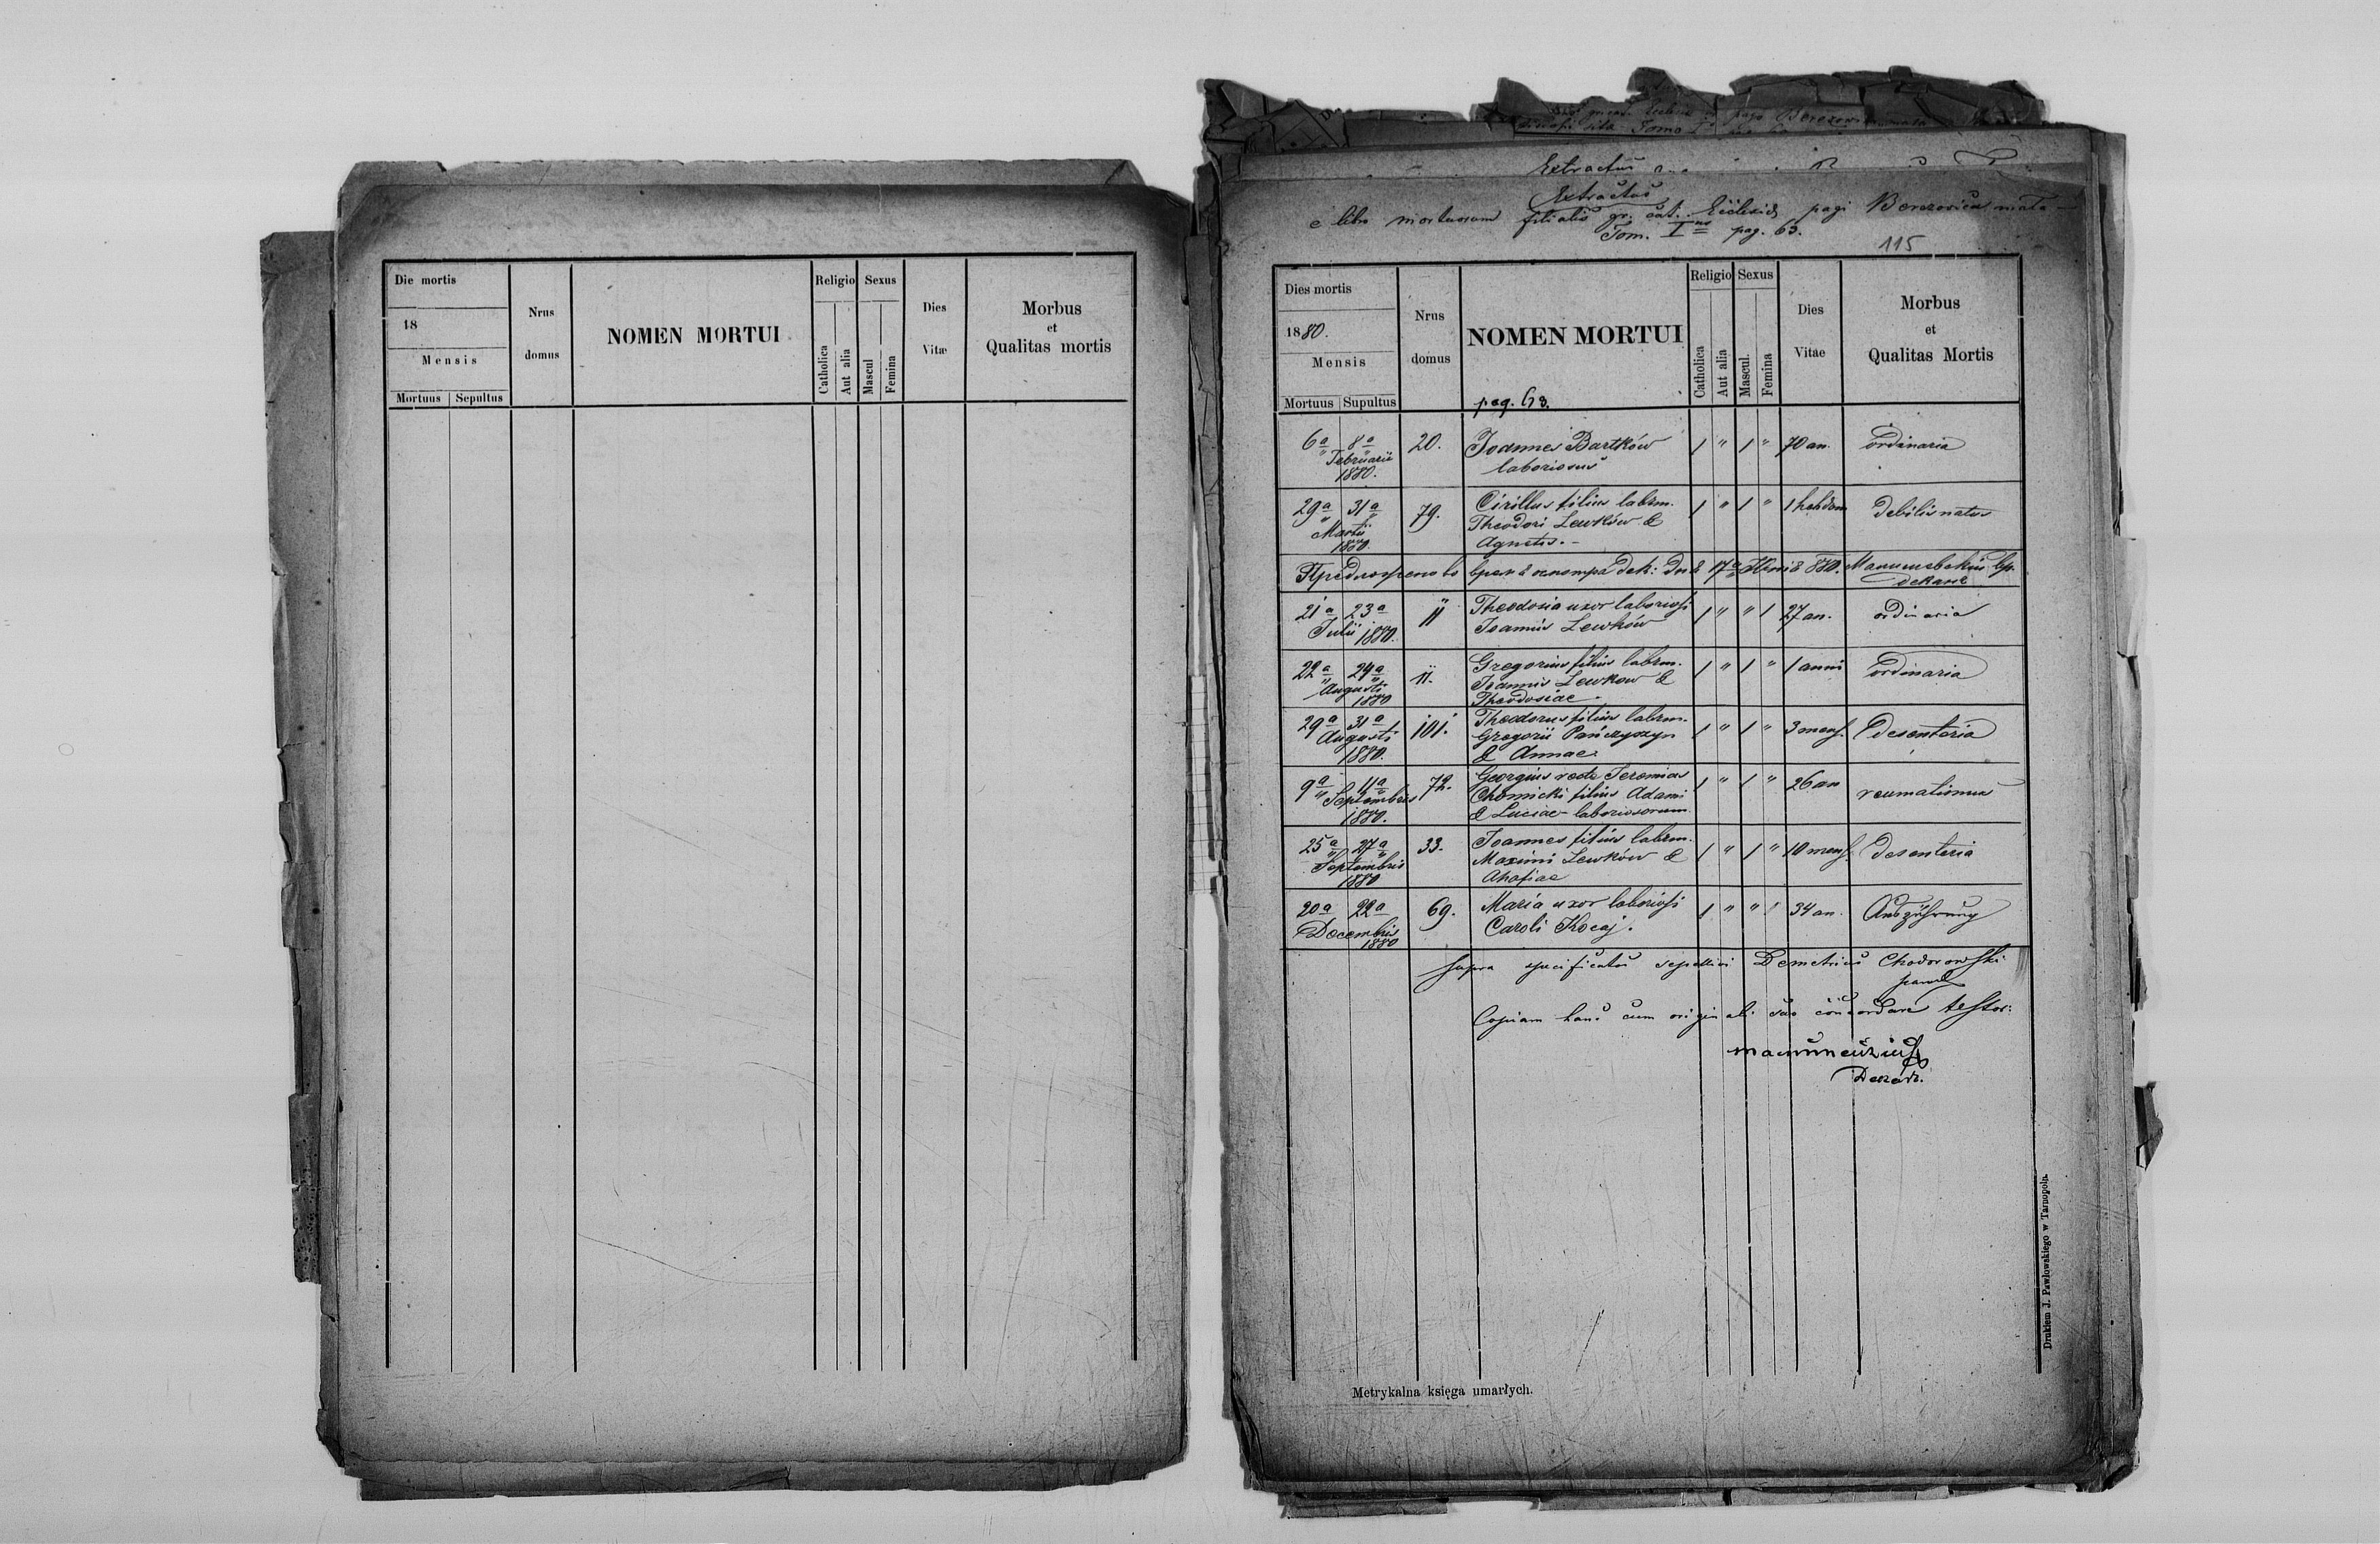 Die mortis
18
Mensis
Mortuus Sepultus
Nrus
domus
NOMEN MORTUI
Religio
Catholica
Aut alia
Sexus
Mascul
Femina
Dies
Vitæ
Morbus
et
Qualitas mortis
Extractus
Extractus
e libro mortuorum filialis gr. cat. Ecclesiæ pagi Berezovica mała
Tom. I pag. 63.
115
Dies mortis
1880.
Mensis
Mortuus Supultus
Nrus
domus
NOMEN MORTUI
pag. 63.
Religio
Catholica
Aut alia
Sexus
Mascul.
Femina
Dies
Vitae
Morbus
et
Qualitas Mortis
6a 8a 20. Joannes Bartków 1 " 1 " 70 an. ordinaria
Februarii laboriosus
1880.
29a 31a 79. Cirillus filius labrm. 1 " 1 " 1 hebdom debilis natus
Martii Theodori Lewków &
1880. Agnetis.-
17 880.
21a 23a 11 Theodosia uxor laboriosi 1 " " 1 27 an. ordinaria
Julii 1880. Joannis Lewków
22a 24a 11. Gregorius filius labrm. 1 " 1 " 1 anni ordinaria
Augusti Joannis Lewkow &
1880 Theodosiae.
29a 31a 101. Theodorus filius labrm. 1 " 1 " 3 mens. desenteria
Augusti Gregorii Pańczyszyn
1880. & Annae
9a 11a 72. Georgius recte Jeremias 1 " 1 " 26 an reumatismus
Septembris Chomicki filius Adami
1880. & Luciae laboriosorum
25a 27a 33. Joannes filius labrm. 1 " 1 " 10 mens. desenteria
Septembris Maximi Lewków &
1880 Ahafiae
20a 22a 69. Maria uxor laboriosi 1 " " 1 34 an. Auszehrung
Decembris Caroli Kocaj.
1880
Supra specificatos sepelivi Demetrius Chodorowski
Copiam hanc cum originali suo concordare testor:
Metrykalna księga umarłych.
Drukiem J. Pawłowskiego w Tarnopolu.